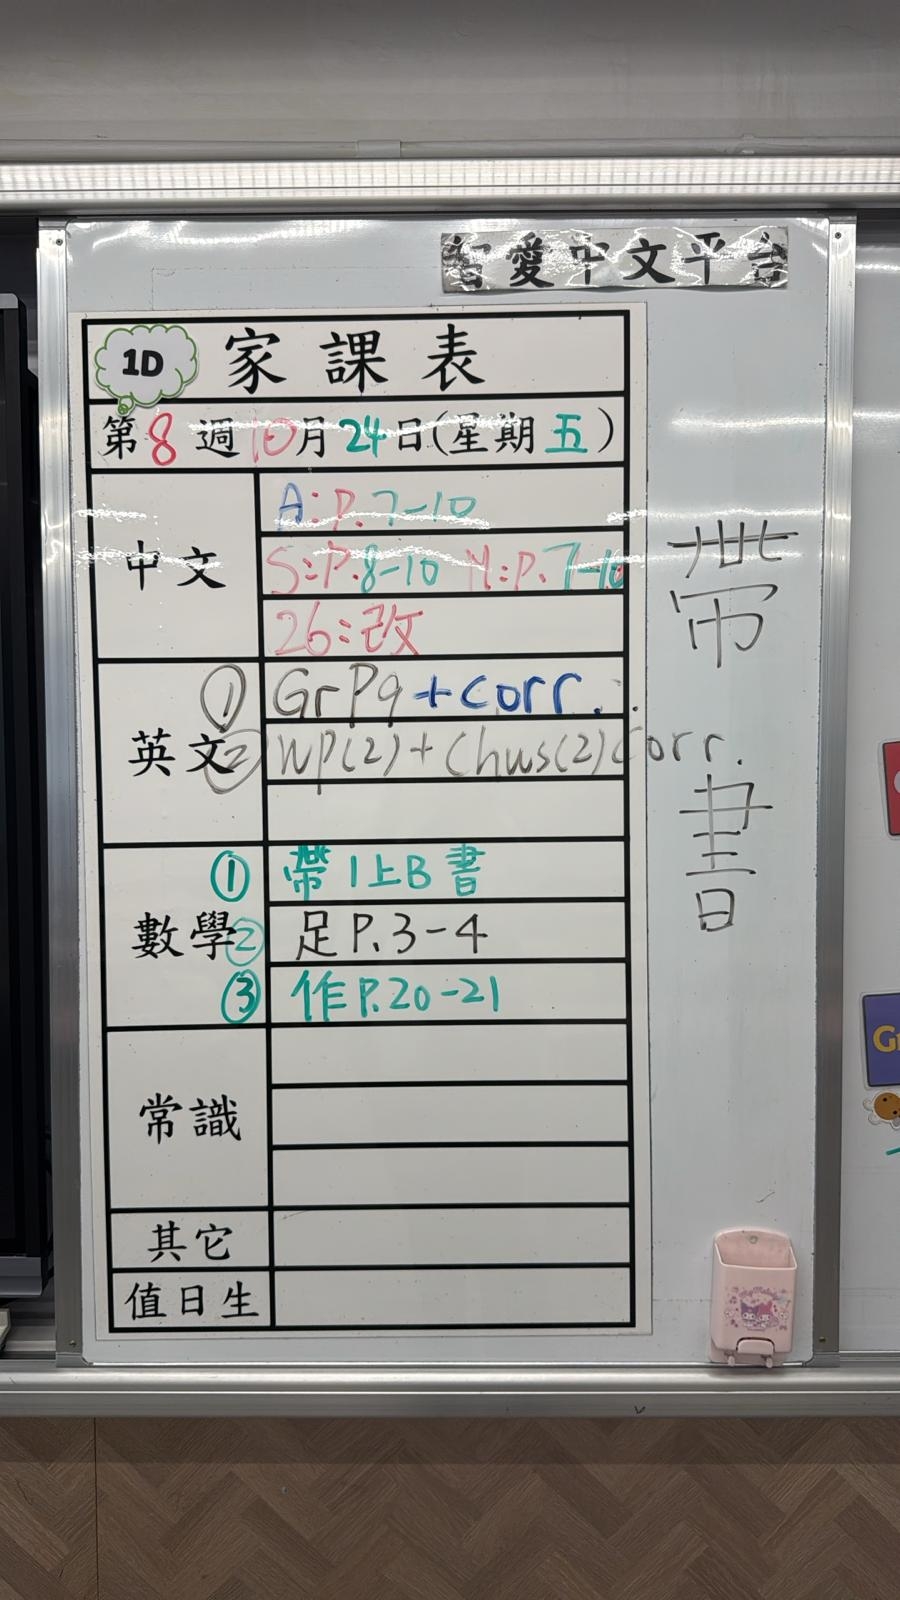 智愛中文平台
1D 家課表
第8週10月24日(星期五)
中文
A:P.7-10
S:P.8-10 M:P.7-10
26:改
英文
① GrP9+corr.
② WP(2)+Chws(2)corr.
數學
① 帶1上B書
② 足P.3-4
③ 作P.20-21
常識
其它
值日生
帶書